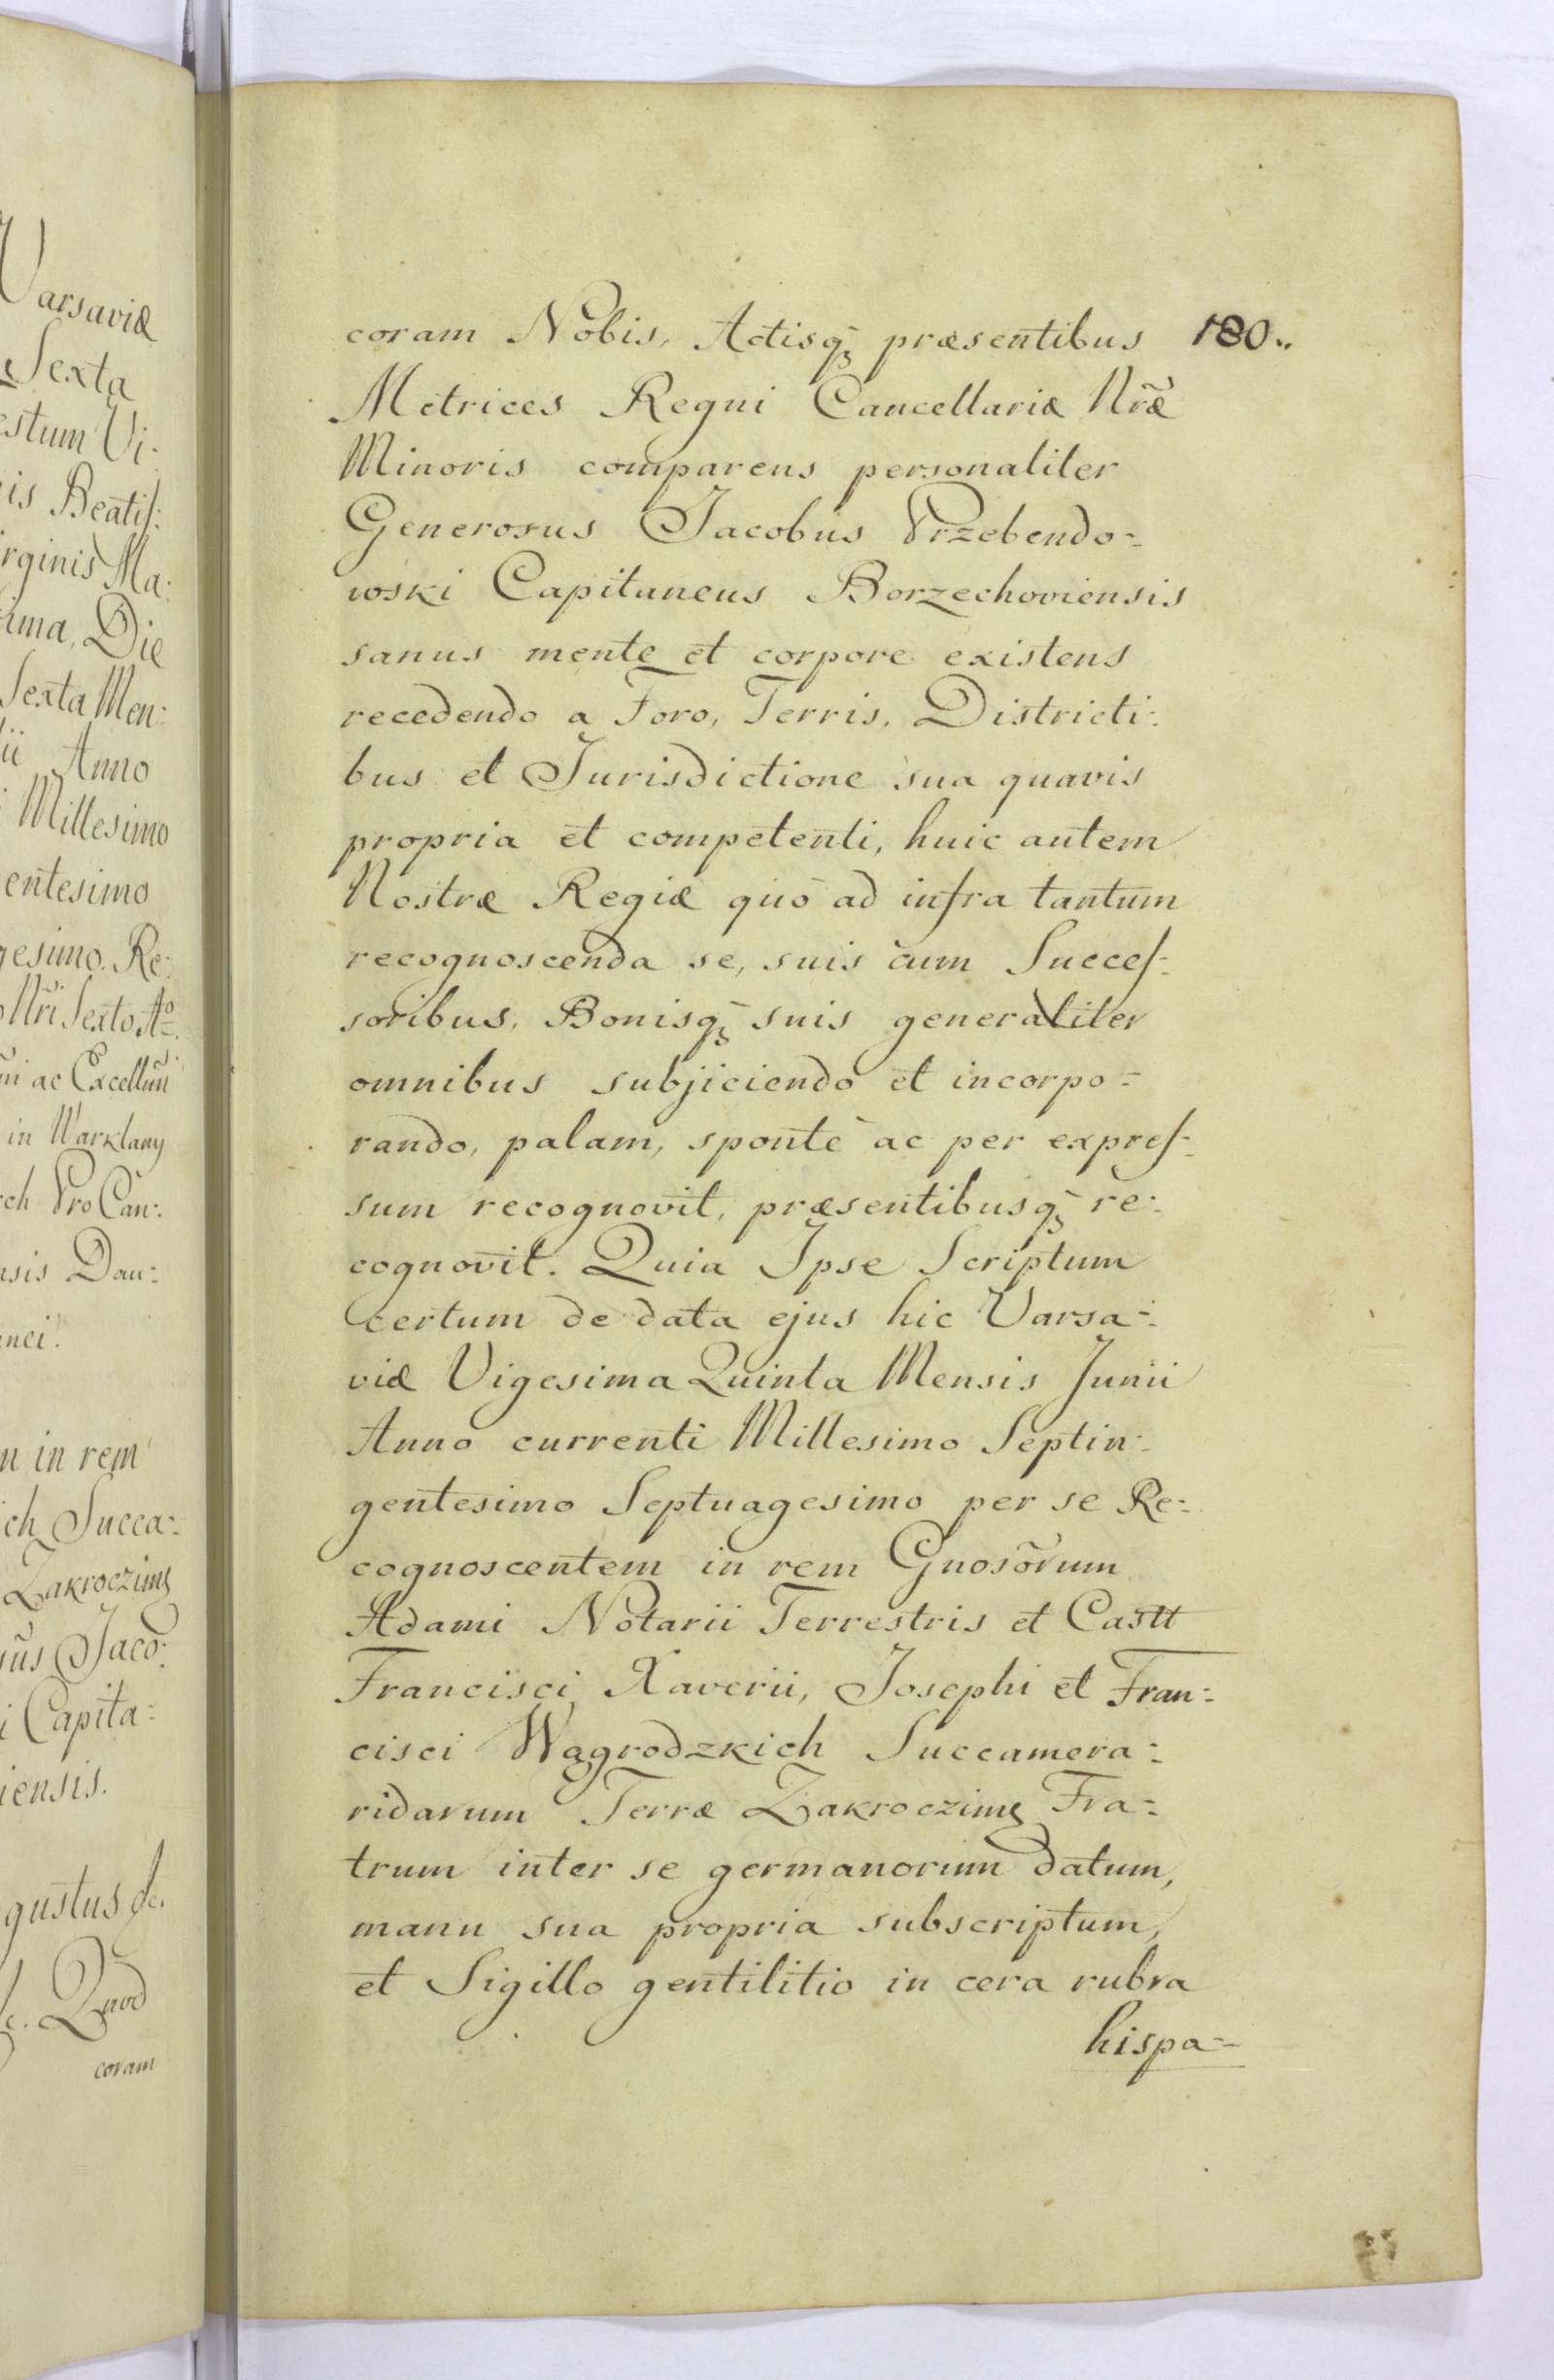 Varsaviæ
Sexta
estum Vi-
is Beatiſ:
irginis Ma:
ima, Die
Sexta Men:
ii Anno
Millesimo
entesimo
gesimo. Re:
Nri Sexto Aº
ac Excellm̃
in Warklany
ch Pro Can:
nsis Dau:
nci.
n in rem
ch Succa:
Zakroczimę
Jaco:
i Capita:
iensis.
gustus &c.
&c. Quod
coram
coram Nobis, Actisqꝫ præsentibus 180.
Metrices Regni Cancellariæ Nr̃æ
Minoris comparens personaliter
Generosus Jacobus Przebendo-
wski Capitaneus Borzechoviensis
sanus mente et corpore existens
recedendo a Foro, Terris, Districti-
bus et Jurisdictione sua quavis
propria et competenti, huic autem
Nostræ Regiæ quò ad infra tantum
recognoscenda se, suis cum Succeſ-
soribus, Bonisqꝫ suis generaliter
omnibus subjiciendo et incorpo-
rando, palam, spontè ac per expreſ-
sum recognovit, præsentibusqꝫ re-
cognovit. Quia Ipse Scriptum
certum de data ejus hic Varsa-
viæ Vigesima Quinta Mensis Junii
Anno currenti Millesimo Septin-
gentesimo Septuagesimo per se Re-
cognoscentem in rem Gnosõrum
Adami Notarii Terrestris et Castt
Francisci Xaverii, Josephi et Fran-
cisci Wągrodzkich Succamera-
ridarum Terræ Zakroczimę Fra-
trum inter se germanorum datum,
manu sua propria subscriptum,
et Sigillo gentilitio in cera rubra
hispa-